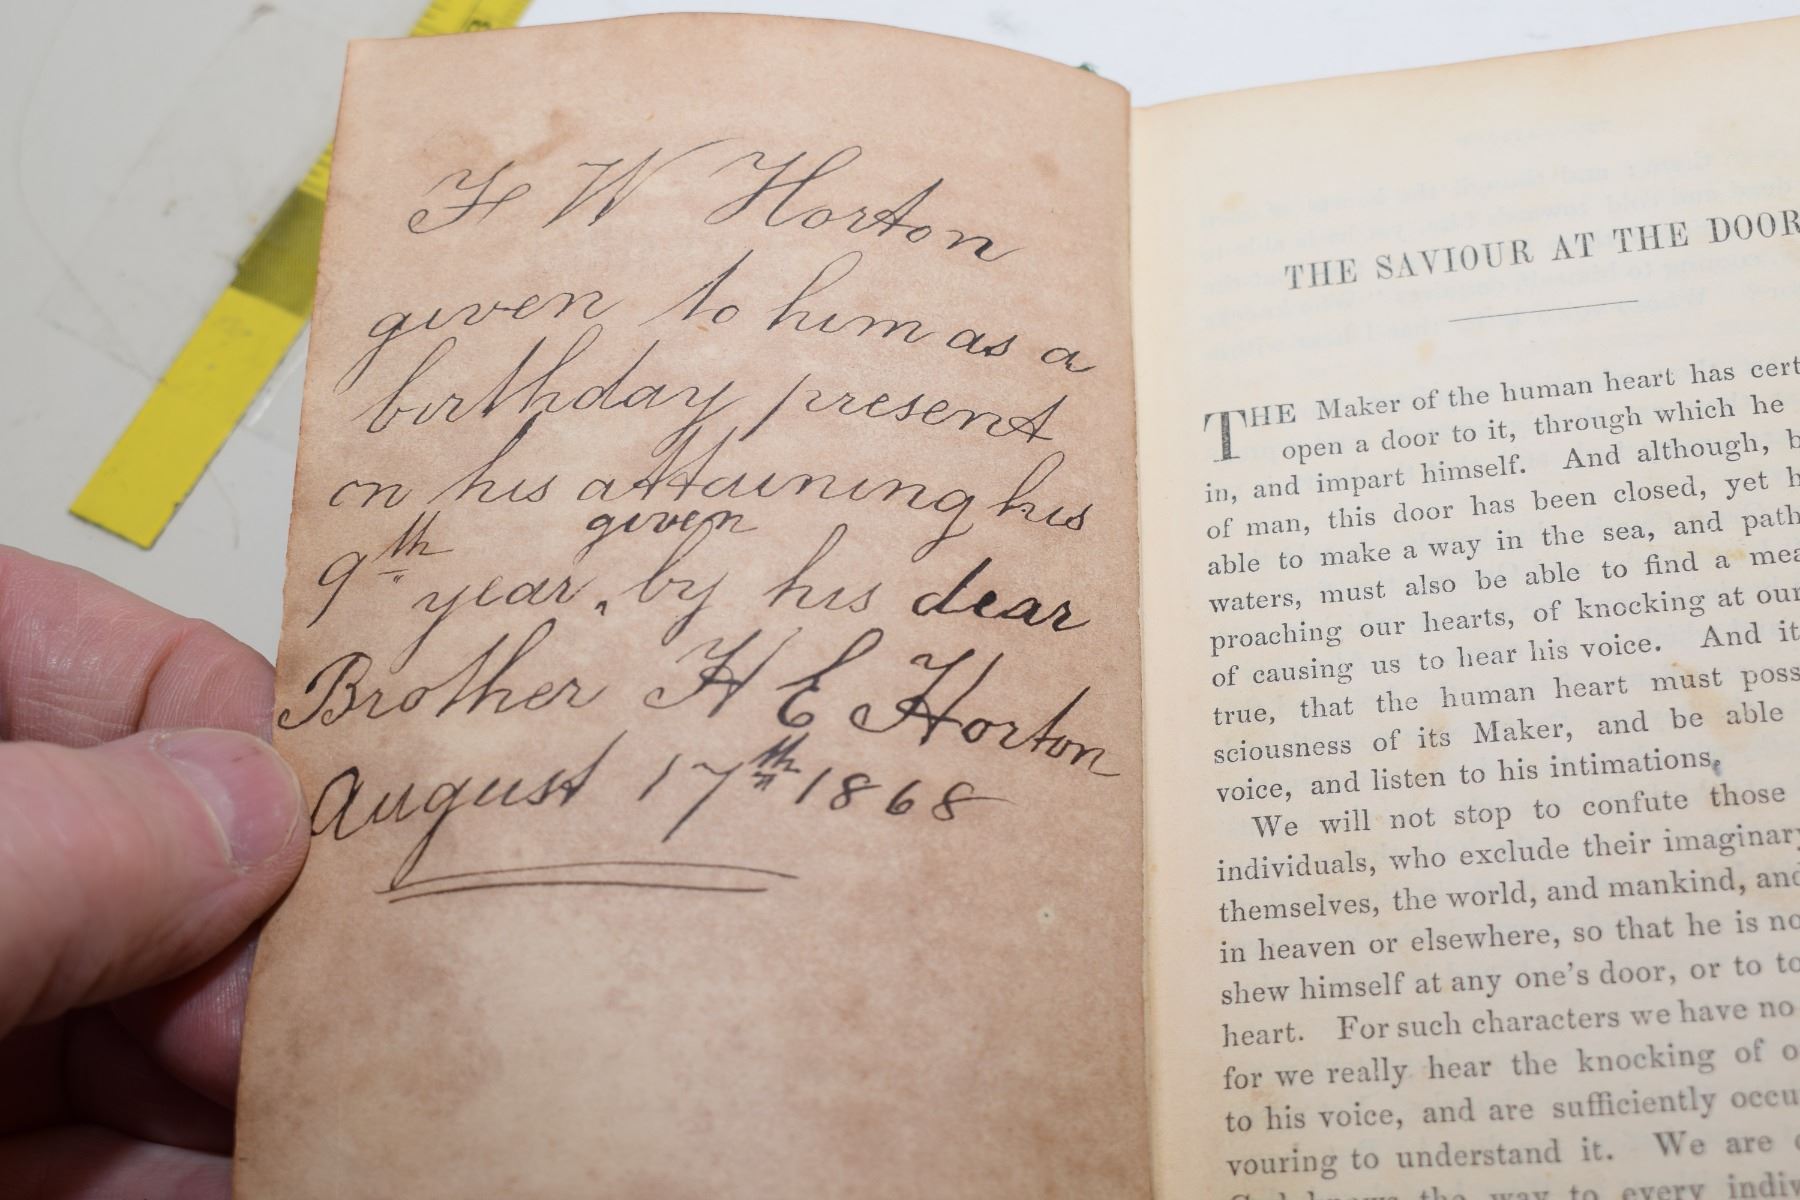 F W Horton
given to him as a
birthday present
on his attaining his
given
9th year, by his dear
Brother H E Horton
August 17th 1868
THE SAVIOUR AT THE DOOR
THE Maker of the human heart has
open a door to it, through which he
in, and impart himself. And although,
of man, this door has been closed, yet
able to make a way in the sea, and
waters, must also be able to find a
proaching our hearts, of knocking at our
of causing us to hear his voice. And it
true, that the human heart must
sciousness of its Maker, and be able
voice, and listen to his intimations.
We will not stop to confute those
individuals, who exclude their imaginary
themselves, the world, and mankind, and
in heaven or elsewhere, so that he is
shew himself at any one's door, or to
heart. For such characters we have no
for we really hear the knocking of
to his voice, and are sufficiently
vouring to understand it. We are
God knows the way to every